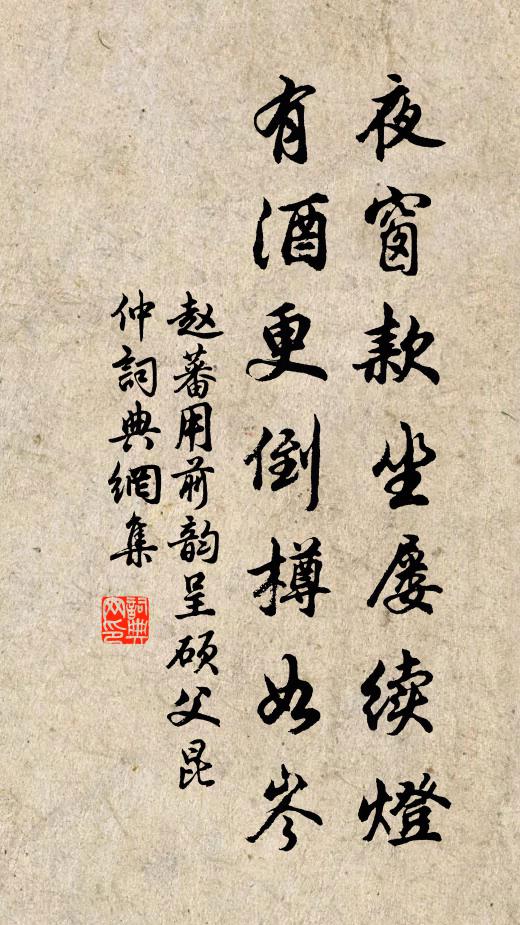 夜窗款坐屡续燈
有酒更倒樽如岑
赵蕃用前韵呈硕父昆
仲詞典網集
詞典网印